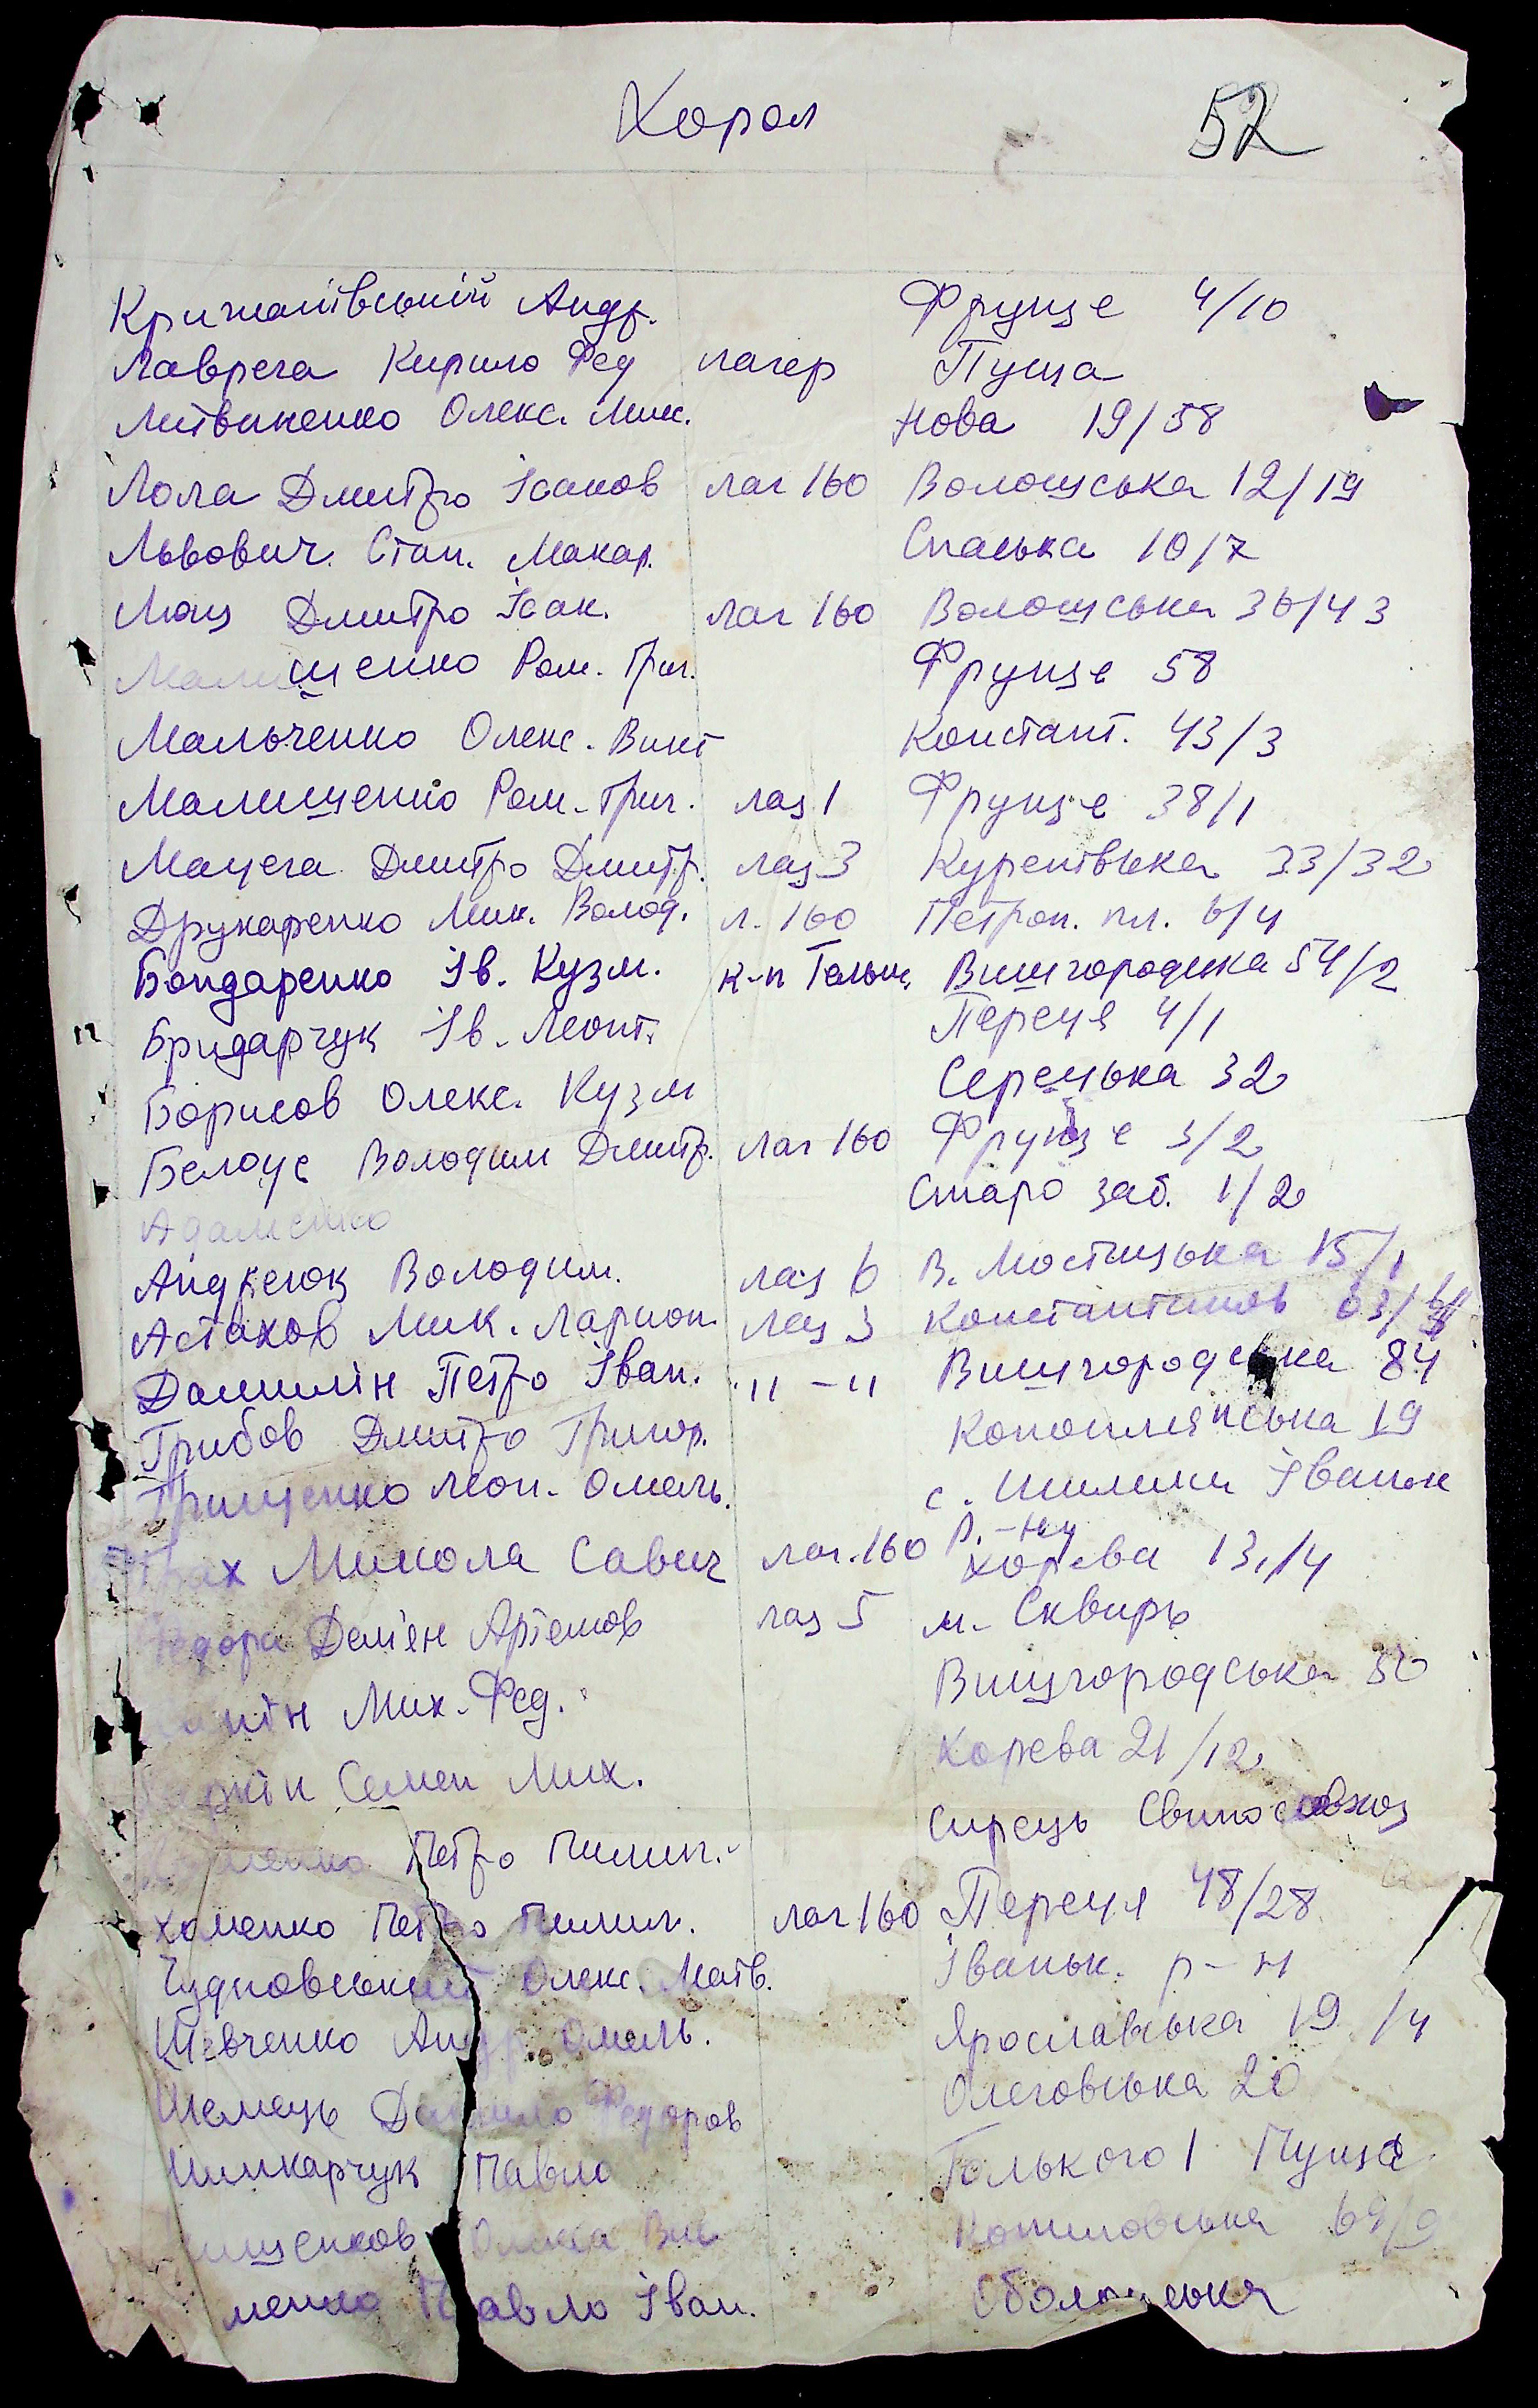 Хорол 52
Крижанівський Андр. Фрунзе 4/10
Лаврега Кирило Фед лагер Пуща
Литвиненко Олекс. Мик. Нова 19/58
Лола Дмитро Ісаков лаг 160 Волошська 12/19
Львович Стан. Макар. Спаська 10/7
Люц Дмитро Ісак. лаг 160 Волошська 36/43
Малишенко Ром. Григ. Фрунзе 58
Мальченко Олекс. Викт Констант. 43/3
Малишенко Ром. Григ. лаз 1 Фрунзе 38/1
Мацега Дмитро Дмитр. лаз 3 Куренівська 33/32
Друкаренко Мик. Волод. л. 160 Петроп. пл. 6/4
Бондаренко Ів. Кузм. к-п Гольш. Вишгородська 54/2
Бридарчук Ів. Леонт. Переця 4/1
Борисов Олекс. Кузм Серецька 32
Белоус Володим Дмитр. лаг 160 Фрунзе 3/2
Адаменко Старо заб. 1/2
Андреюк Володим. лаз 6 В. Мостицька 15/1
Астахов Мик. Ларион. лаз 3 Константинов 63/
Данилін Петро Іван. -"-" Вишгородська 84
Грибов Дмитро Григор. Коноплянська 19
Грищенко Леон. Омель. с. Шилини Іваньк
р.-ну
Микола Савич лаг. 160 Хорева 13/4
Федора Дем'ян Артемов лаз 5 м. Сквирь
Мих. Фед. Вишгородська
Семен Мих. Хорева 21/12
Петро Пилип. Сирець Свиносовхоз
Хоменко Петро Пилип. лаг 160 Переця 48/28
Чудновський Олекс. Матв. Іваньк. р-н
Шевченко Андр Омель. Ярославська 19/4
Шемець Данило Федоров Олеговська 20
Шинкарчук Павло Голького 1 Пуща
Олекса 69/9
менко Павло Іван. Оболонська